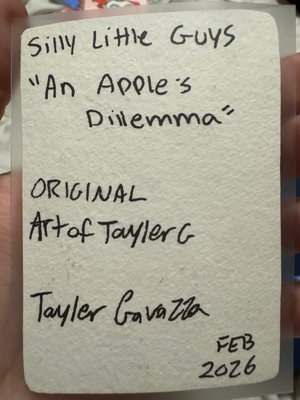 Silly Little Guys
"An Apple's
Dillemma"
ORIGINAL
Art of Tayler G
Tayler Gavazza
FEB
2026